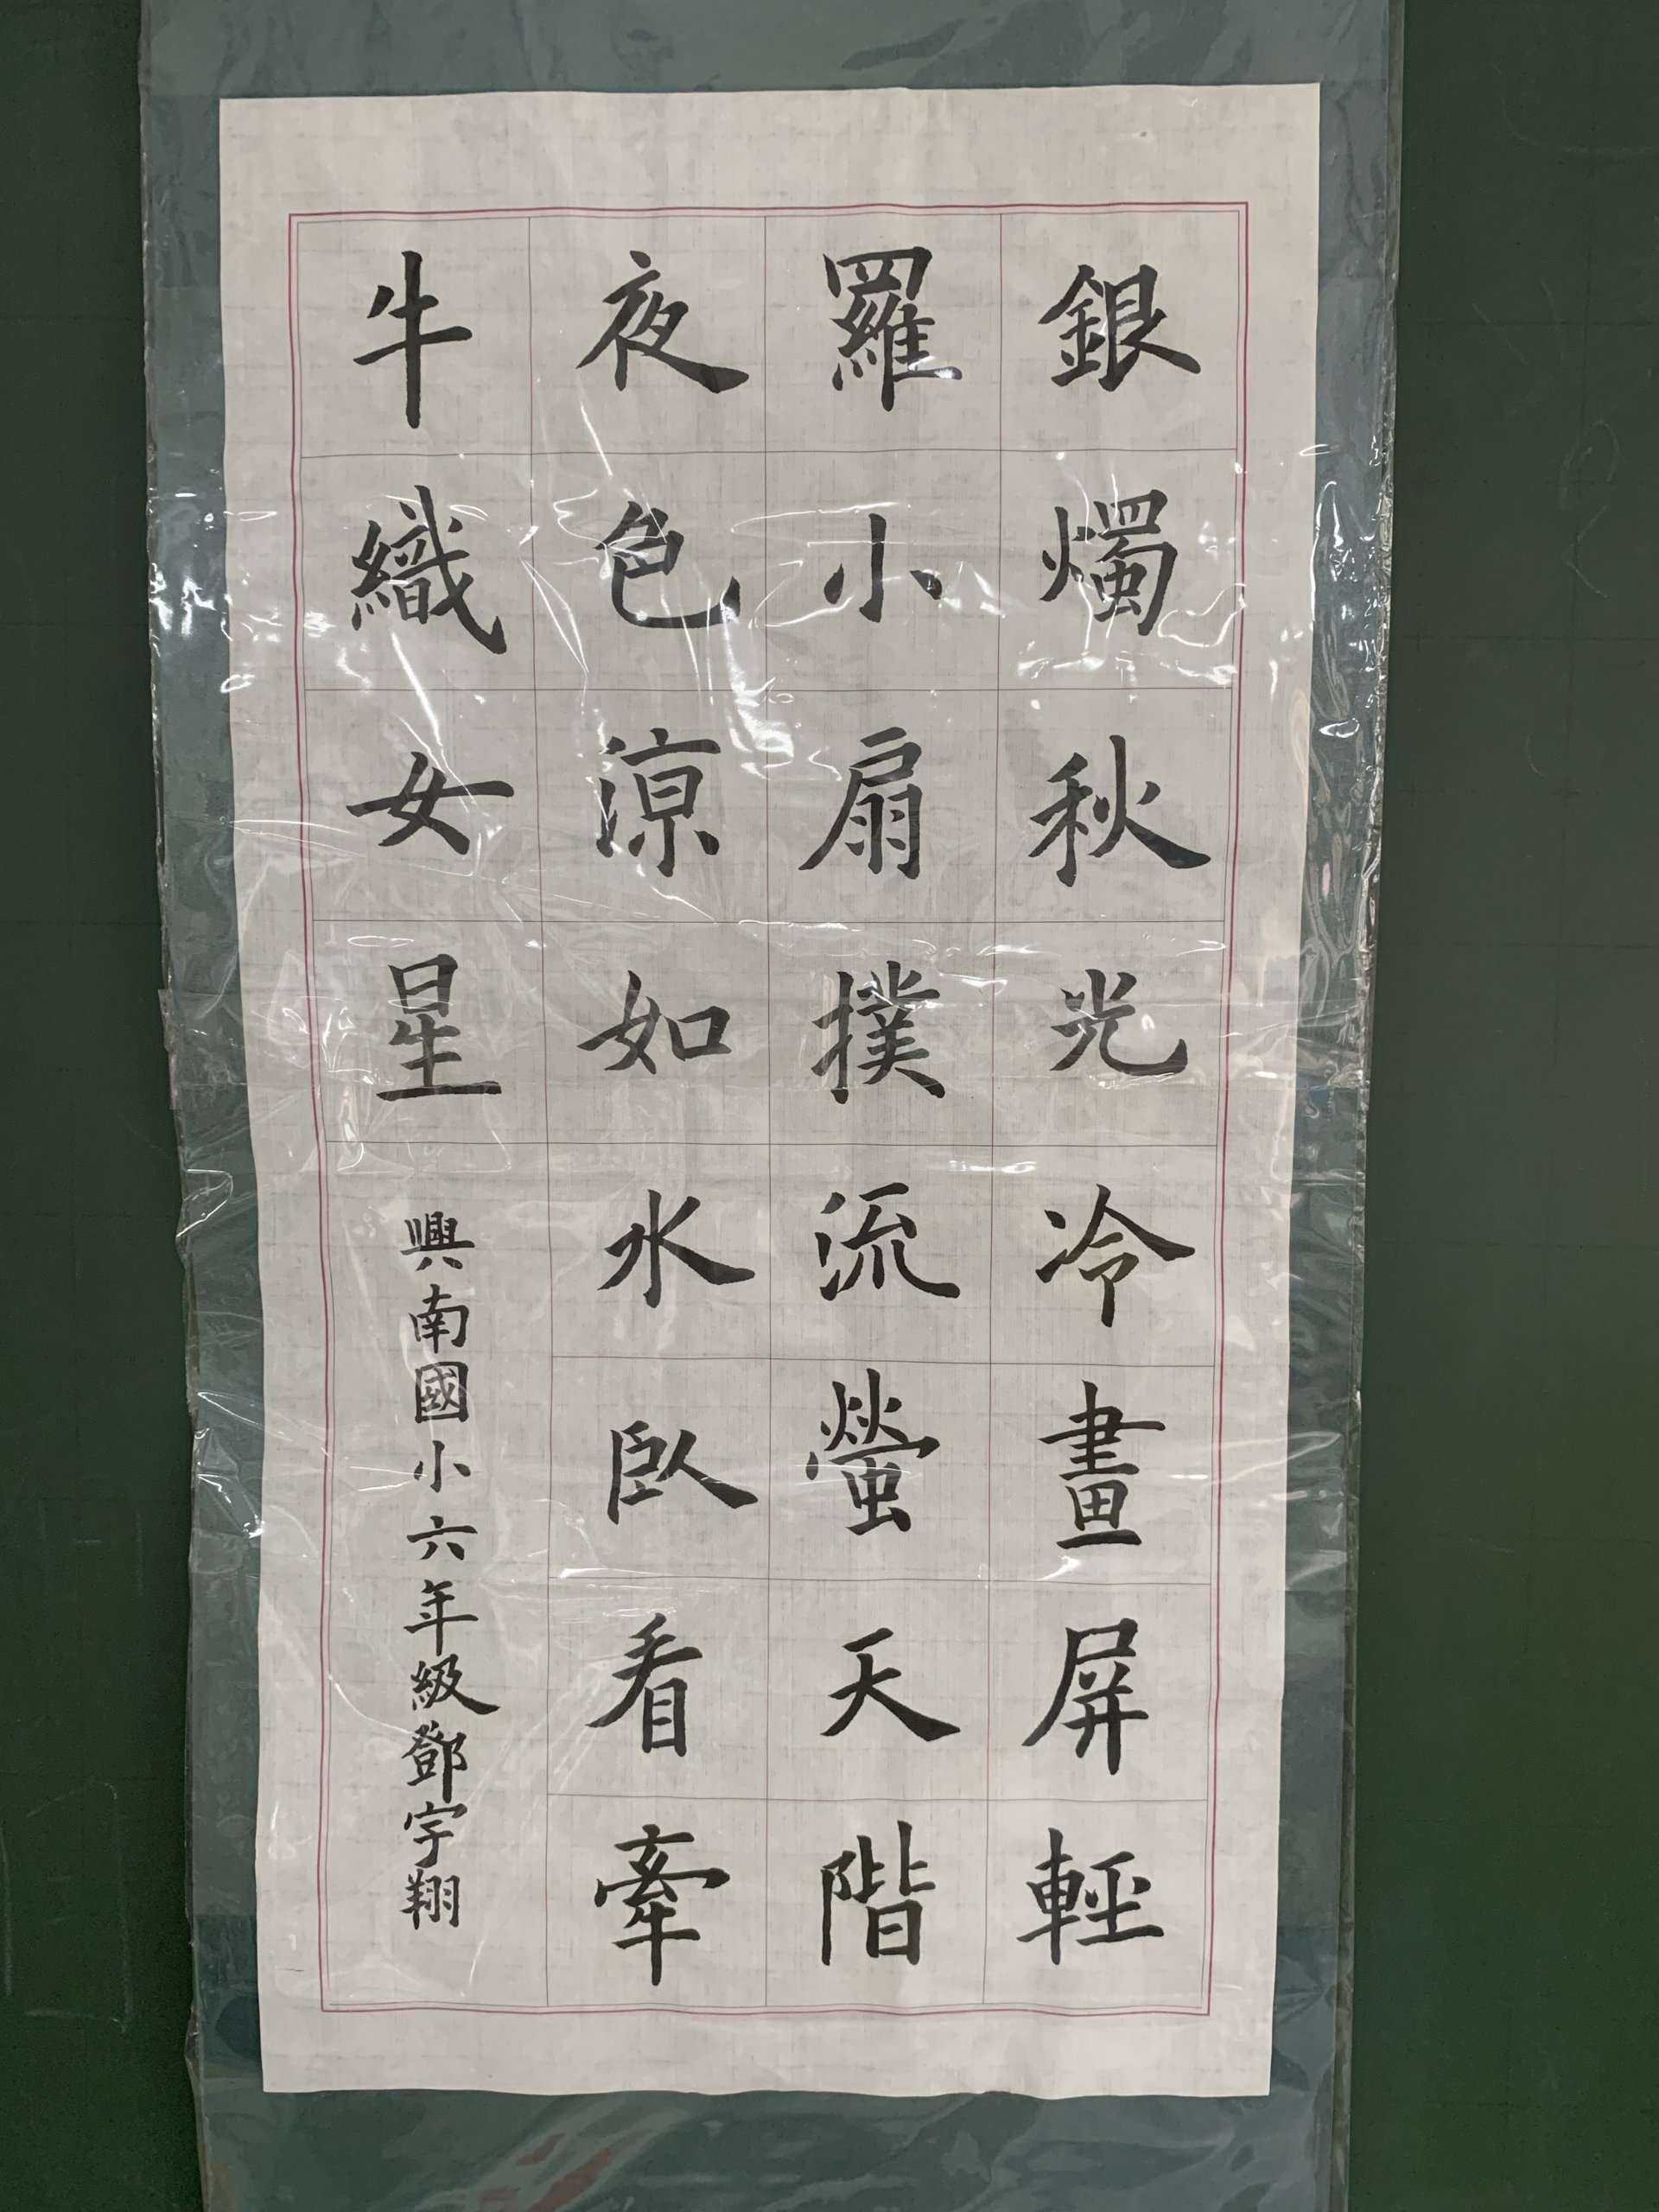 銀燭秋光冷畫屏輕
羅小扇撲流螢天階
夜色涼如水臥看牽
牛織女星
興南國小六年級鄧宇翔